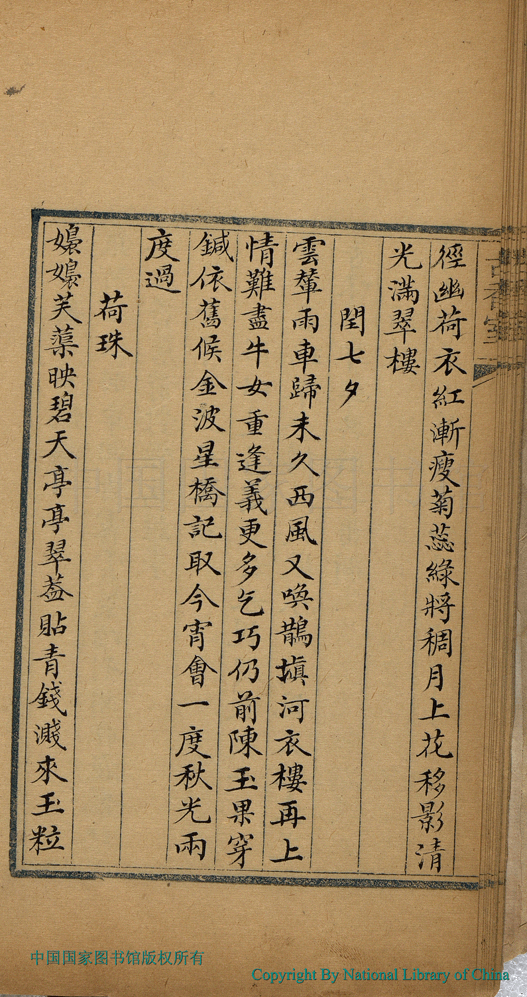 徑幽荷衣紅漸瘦菊蕊綠將稠月上花移影清
光滿翠樓
閏七夕
雲輦雨車歸未久西風又喚鵲塡河衣樓再上
情難盡牛女重逢義更多乞巧仍前陳玉果穿
鍼依舊候金波星橋記取今宵會一度秋光兩
度過
荷珠
嬝嬝芙蕖映碧天亭亭翠葢貼青錢濺來玉粒
中国国家图书馆版权所有
Copyright By National Library of China